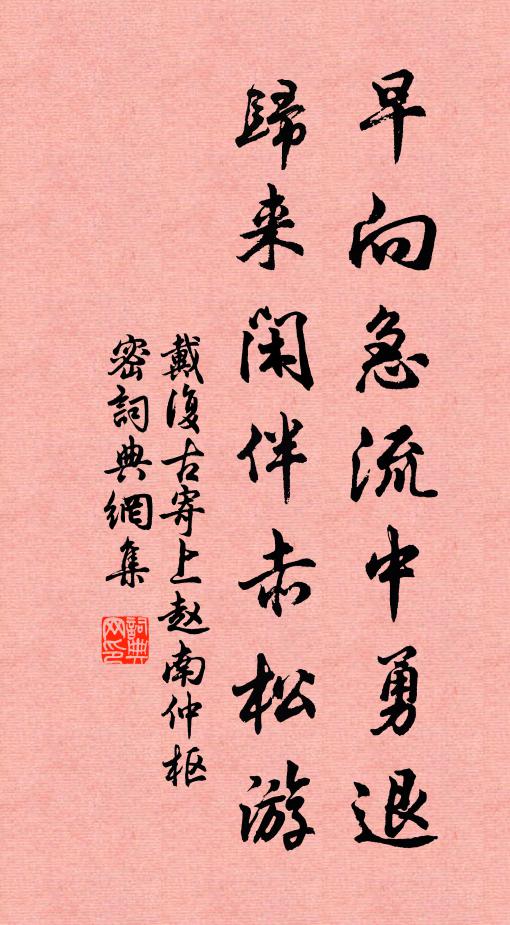 早向急流中勇退
歸来閑伴赤松游
戴復古寄上赵南仲枢
密詞典網集
詞典
网印